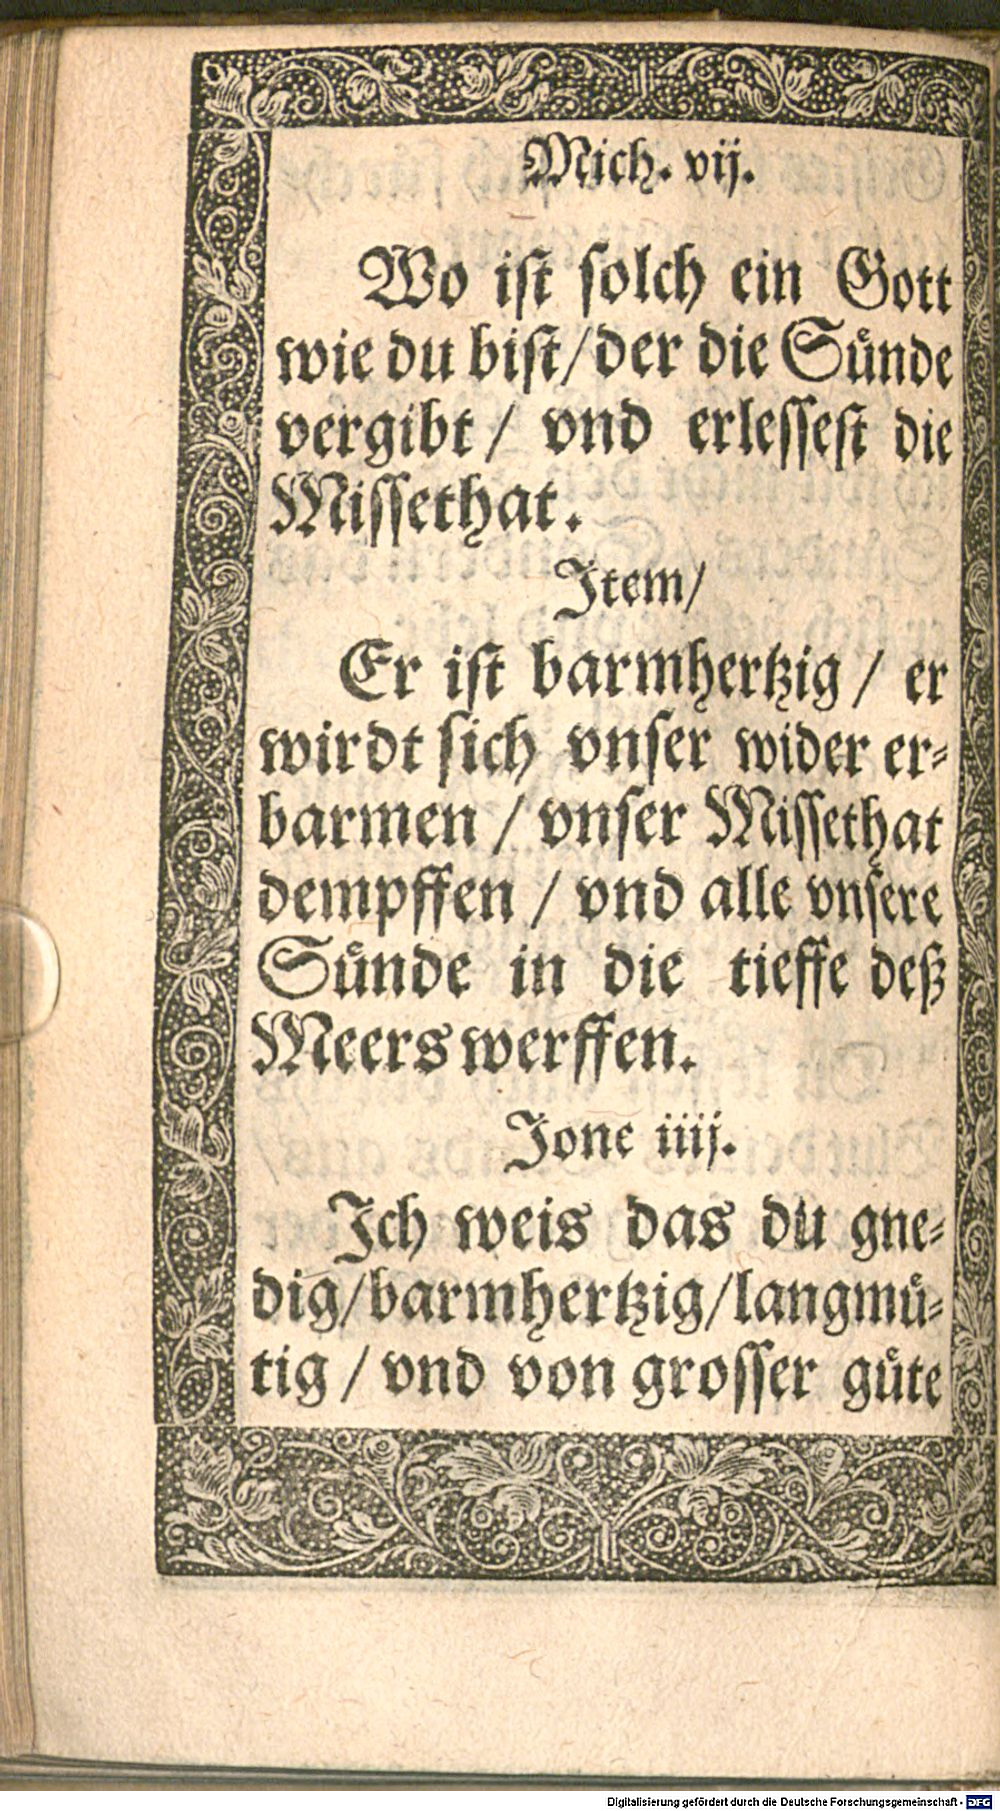 Mich. vij.
Wo iſt ſolch ein Gott
wie du biſt/der die Suͤnde
vergibt/ vnd erleſſeſt die
Miſſethat.
Item/
Er iſt barmhertzig/ er
wirdt ſich vnſer wider er⸗
barmen / vnſer Miſſethat
dempffen / vnd alle vnſere
Suͤnde in die tieffe deß
Meers werffen.
Jone iiij.
Ich weis das du gne⸗
dig/barmhertzig/langmuͤ⸗
tig / vnd von groſſer guͤte
Digitalisierung gefördert durch die Deutsche Forschungsgemeinschaft - DFG